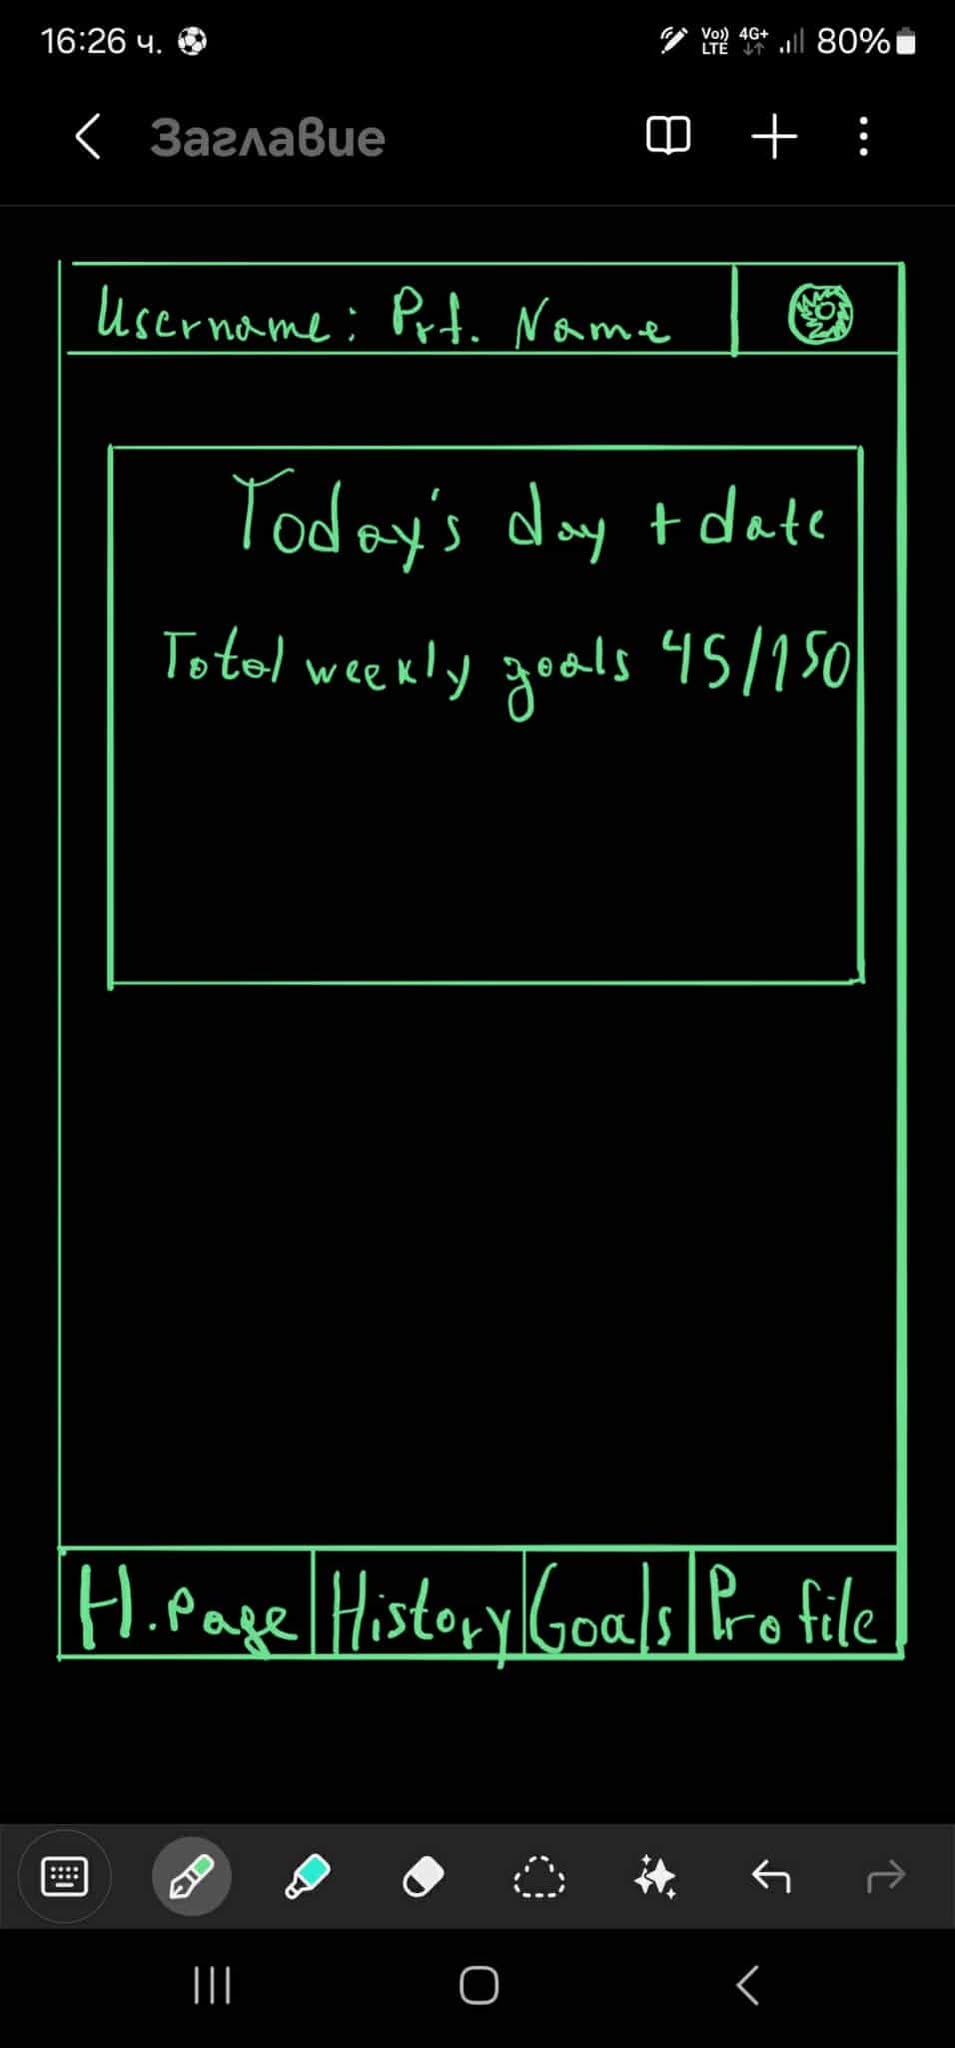 16:26 ч. Vo)) LTE 4G+ 80%
Заглавие
Username: Prf. Name
Today's day + date
Total weekly goals 45/150
H. Page History Goals Profile